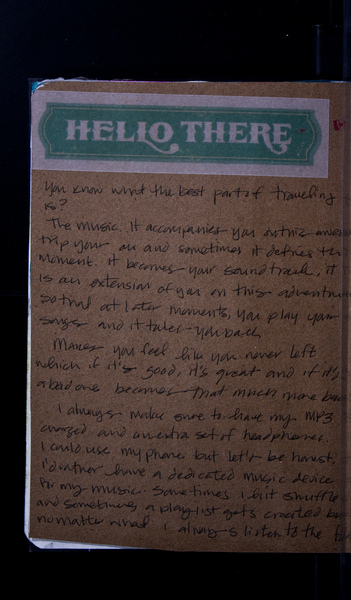 HELLO THERE
You know what the best part of traveling
is?
The music. It accompanies you on this
trip your on and sometimes it defines the
moment. It becomes your soundtrack, it
is an extension of you on this adventure
so that at later moments, you play your
songs and it takes you back
Makes you feel like you never left
which if it's good, it's great and if it's
a bad one becomes that much more
I always make sure to have my MP3
charged and an extra set of headphones.
I could use my phone but let's be honest,
I'd rather have a dedicated music device
for my music. Sometimes I hit shuffle
and sometimes a playlist gets created
no matter what I always listen to the